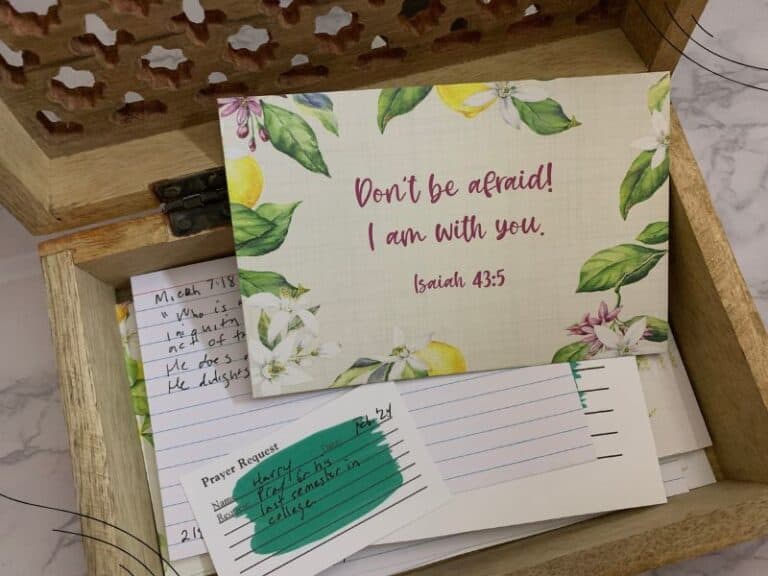 Don't be afraid!
I am with you.
Isaiah 43:5
Micah 7:18
"Who is
iniquity
act of
He does
He delights
Prayer Request
Feb '24
Name
Harry
Pray for his
last semester in
college.